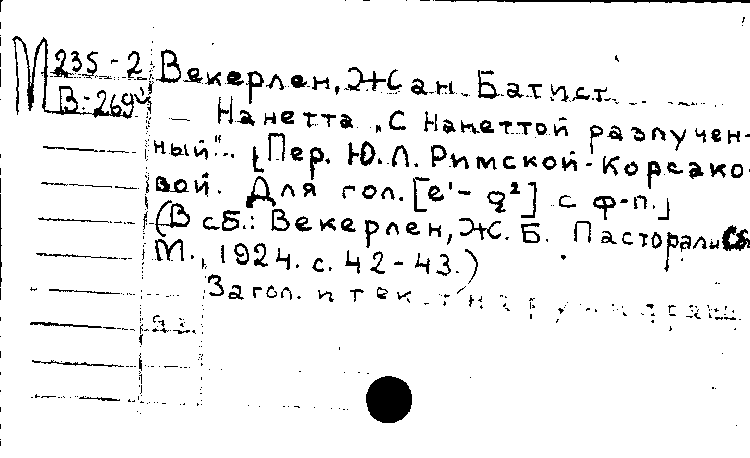 М 235-2 Векерлен, Жан Батист
В-269
— Нанетта „С Нанеттой разлучен-
ный"... [Пер. Ю.Л. Римской-Корсако-
вой. Для гол. [e¹-g²] с ф-п.]
(В сб.: Векерлен, Ж. Б. Пасторали
М., 1924. с. 42-43.)
Загол. и текст на рус. и франц.
яз.